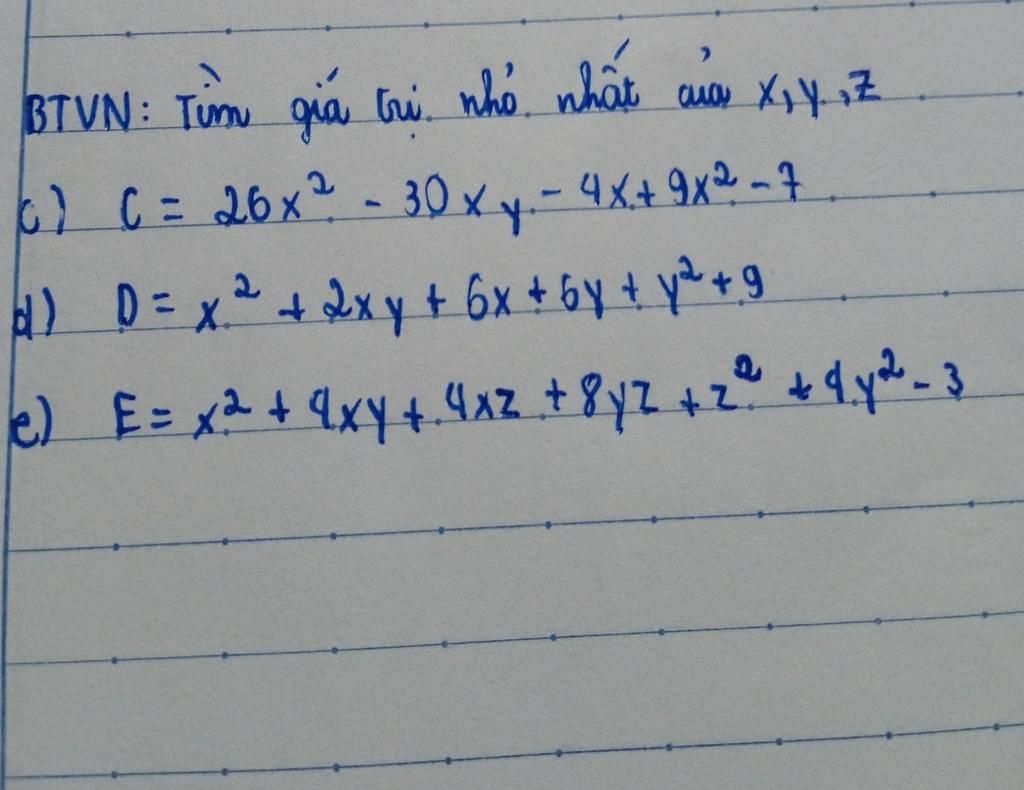 BTVN: Tìm giá trị nhỏ nhất của x, y, z
c) C = 26x² - 30xy - 4x + 9x² - 7
d) D = x² + 2xy + 6x + 6y + y² + 9
e) E = x² + 4xy + 4xz + 8yz + z² + 4y² - 3